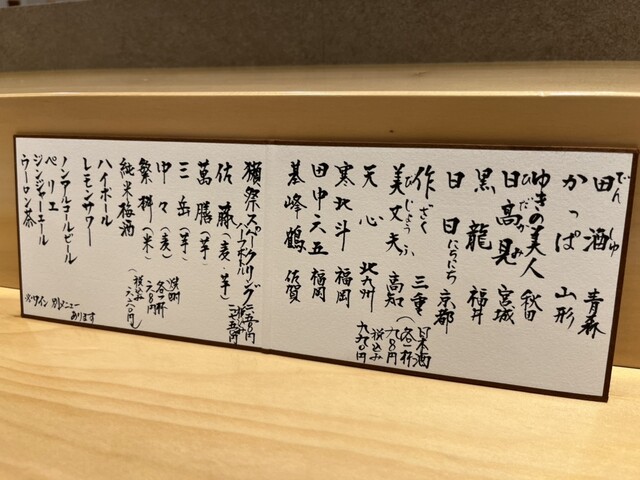 田酒 青森
でん しゅ
かっぱ 山形
ゆきの美人 秋田
日高見 宮城
ひだかみ
黒龍 福井
日日 にちにち 京都
作 三重
ざく
美丈夫 高知
びじょうふ
天心 北九州
寒北斗 福岡
田中六五 福岡
基峰鶴 佐賀
日本酒
(各一杯)
税込み
獺祭スパークリング
ハーフボトル
佐藤(麦・芋)
萬膳(芋)
三岳(芋)
中々(麦)
繁桝(米)
純米梅酒
焼酎
各一杯
税込み
ハイボール
レモンサワー
ノンアルコールビール
ペリエ
ジンジャーエール
ウーロン茶
※ワイン 別メニュー
あります